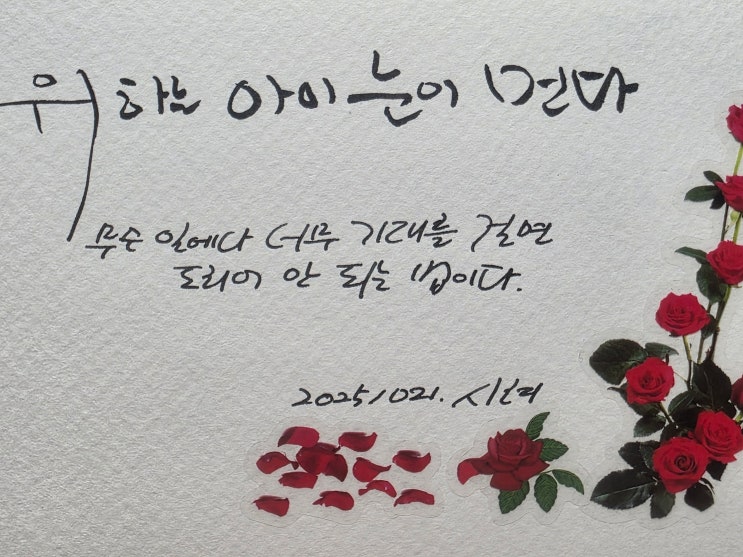 위하는 아이 눈이 먼다
무슨 일에다 너무 기대를 걸면
도리어 안 되는 법이다.
20251021.